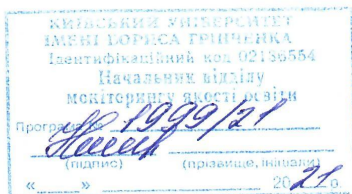 КИЇВСЬКИЙ УНІВЕРСИТЕТ
ІМЕНІ БОРИСА ГРІНЧЕНКА
Ідентифікаційний код 02136554
Начальник відділу
моніторингу якості освіти
Програма № 1999/21
(підпис) (прізвище, ініціали)
« » 2021 р.